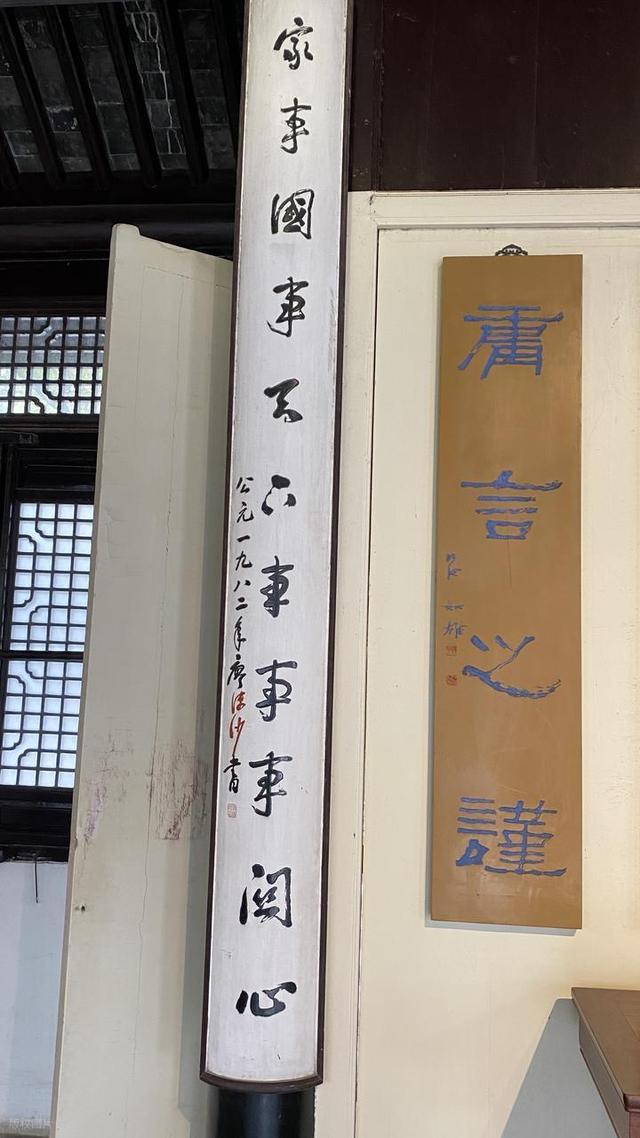 庸言之謹
家事國事天下事事事關心
公元一九八二年廖沫沙書